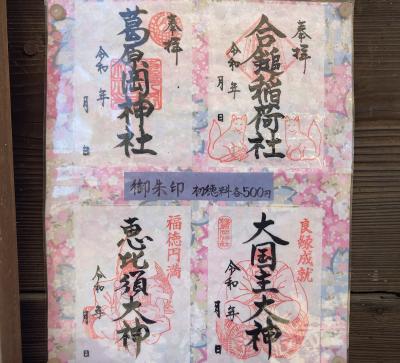 奉拝
合鎚稲荷社
令和 年
月 日
奉拝
葛原岡神社
令和 年
月 日
御朱印 初穂料各500円
良縁成就
大国主大神
令和 年
月 日
福徳円満
恵比須大神
令和 年
月 日